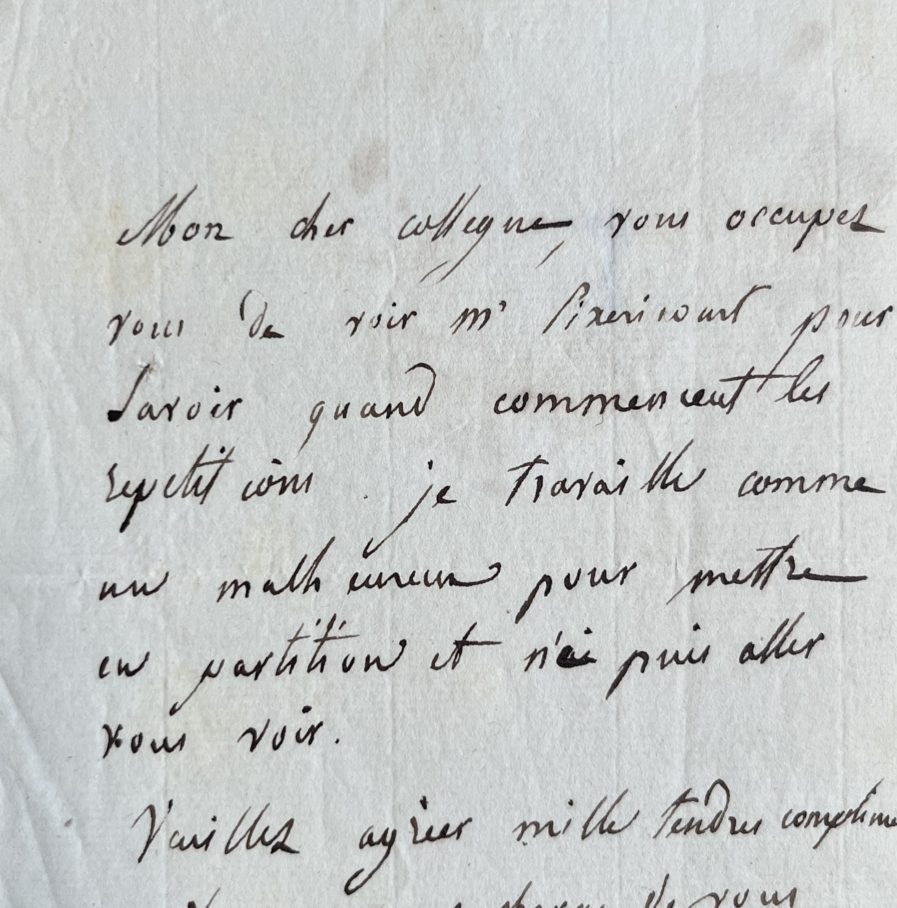 Mon cher collegue, vous occupez
vous de voir mr Pixericourt pour
savoir quand commencent les
repetitions. je travaille comme
un malheureux pour mettre
en partition et n'ai puis aller
vous voir.
Veuillez agréer mille tendres complime
de vous